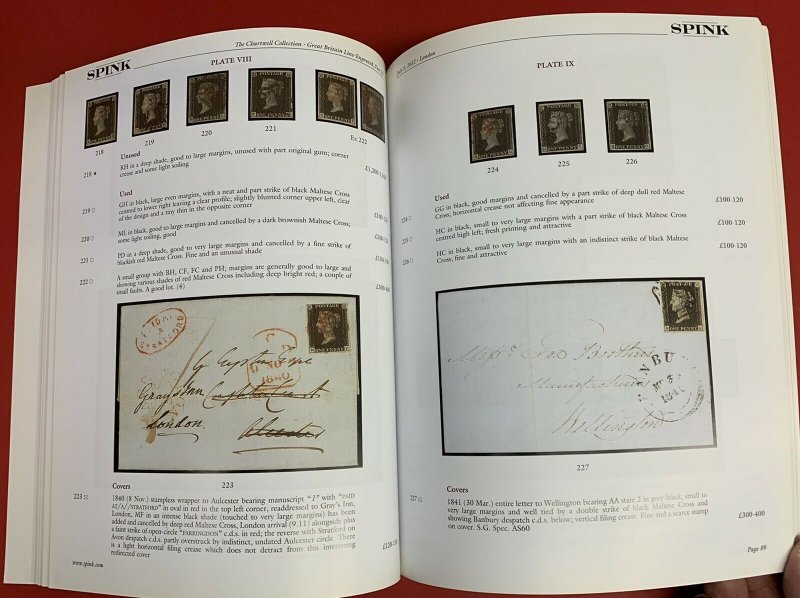 SPINK
The Chartwell Collection - Great Britain Line-Engraved, Part
PLATE VIII
218
219
220
221
Ex 222
Unused
218 ★ RH in a deep shade, good to large margins, unused with part original gum; corner
crease and some light soiling
Used
219 ○ GH in black, large even margins, with a neat and part strike of black Maltese Cross
centred to lower right leaving a clear profile; slightly blunted corner upper left, clear
of the design and a tiny thin in the opposite corner
£100-120
220 ○ ML in black, good to large margins and cancelled by a dark brownish Maltese Cross;
some light soiling, good
221 ○ PD in a deep shade, good to very large margins and cancelled by a fine strike of
blackish red Maltese Cross. Fine and an unusual shade
222 ○ A small group with BH, CF, FC and PH; margins are generally good to large and
showing various shades of red Maltese Cross including deep bright red; a couple of
small faults. A good lot. (4)
£300-400
POSTAGE
ONE PENNY
STRATFORD
1840
Grays Inn
London
Alcester
223
Covers
223 ✉ 1840 (8 Nov.) stampless wrapper to Aulcester bearing manuscript "1" with "PAID
AT/3//STRATFORD" in oval in red in the top left corner, readdressed to Gray's Inn,
London, MF in an intense black shade (touched to very large margins) has been
added and cancelled by deep red Maltese Cross, London arrival (9.11) alongside plus
a faint strike of open-circle "FARRINGDON" c.d.s. in red; the reverse with Stratford on
Avon despatch c.d.s. partly overstruck by indistinct, undated Aulcester circle. There
is a light horizontal filing crease which does not detract from this interesting
redirected cover
£120-150
www.spink.com
SPINK
July 5, 2012 - London
PLATE IX
224
225
226
Used
224 ○ GG in black, good margins and cancelled by a part strike of deep dull red Maltese
Cross; horizontal crease not affecting fine appearance
£100-120
225 ○ HC in black, small to very large margins with a part strike of black Maltese Cross
centred high left; fresh printing and attractive
£100-120
226 ○ HC in black, small to very large margins with an indistinct strike of black Maltese
Cross; fine and attractive
£100-120
POSTAGE
ONE PENNY
Brothers
Manufacturers
Wellington
227
Covers
227 ✉ 1841 (30 Mar.) entire letter to Wellington bearing AA state 2 in grey-black, small to
very large margins and well tied by a double strike of black Maltese Cross and
showing Banbury despatch c.d.s. below; vertical filing crease. Fine and a scarce stamp
on cover. S.G. Spec. AS60
£300-400
Page 89